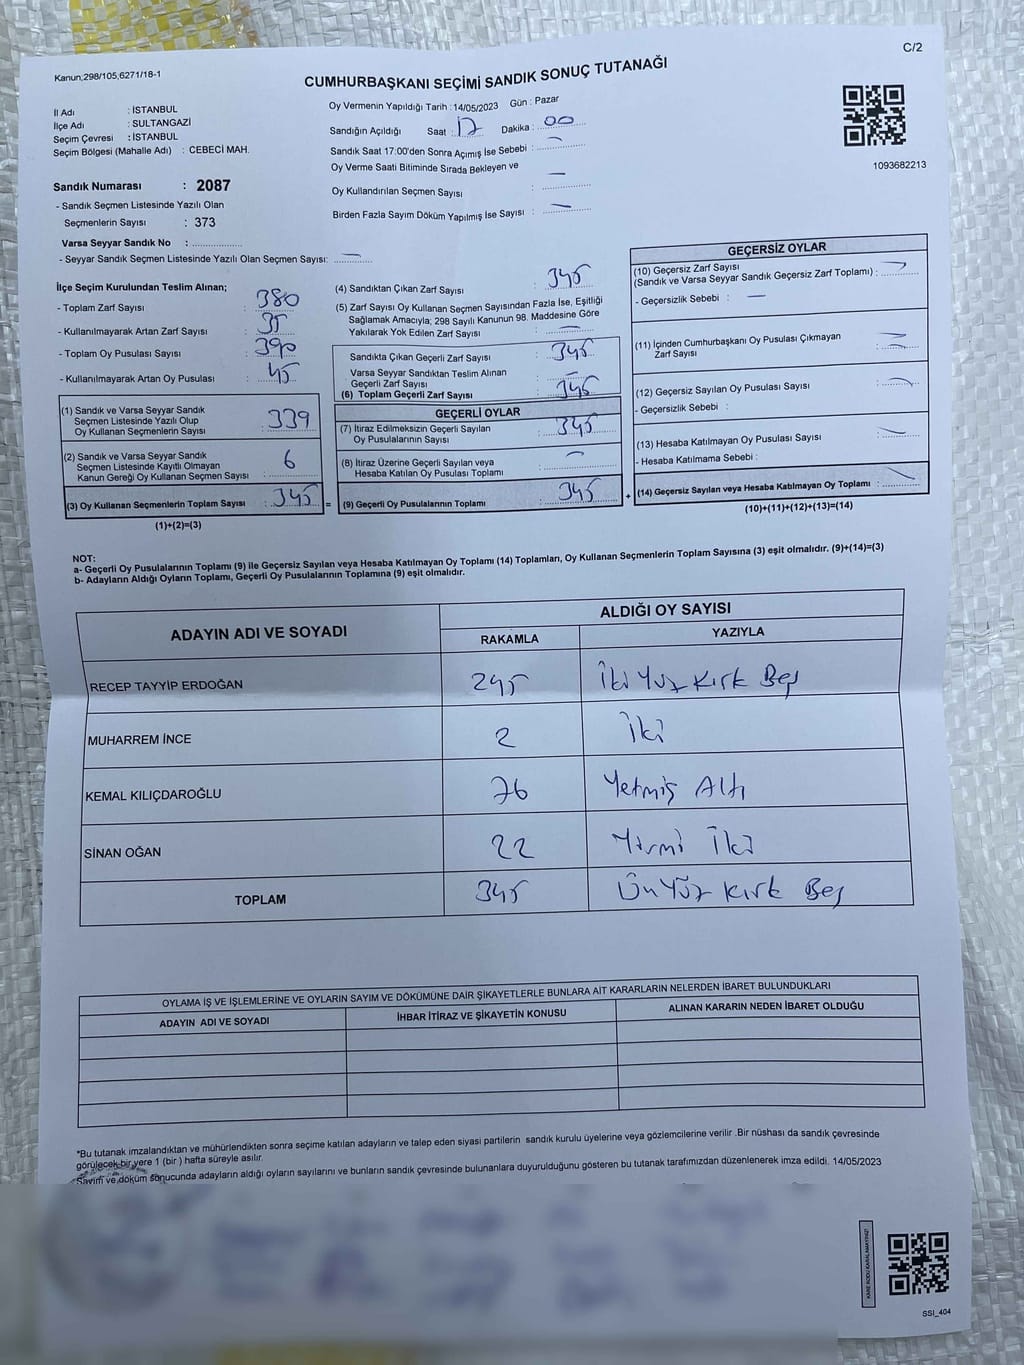 C/2
Kanun;298/105,6271/18-1
CUMHURBAŞKANI SEÇİMİ SANDIK SONUÇ TUTANAĞI
İl Adı : İSTANBUL
İlçe Adı : SULTANGAZİ
Seçim Çevresi : İSTANBUL
Seçim Bölgesi (Mahalle Adı) : CEBECİ MAH.
Sandık Numarası : 2087
- Sandık Seçmen Listesinde Yazılı Olan
Seçmenlerin Sayısı : 373
Varsa Seyyar Sandık No :
- Seyyar Sandık Seçmen Listesinde Yazılı Olan Seçmen Sayısı: —
Oy Vermenin Yapıldığı Tarih : 14/05/2023 Gün : Pazar
Sandığın Açıldığı Saat : 17 Dakika : 00
Sandık Saat 17:00'den Sonra Açımış İse Sebebi : —
Oy Verme Saati Bitiminde Sırada Bekleyen ve
Oy Kullandırılan Seçmen Sayısı : —
Birden Fazla Sayım Döküm Yapılmış İse Sayısı : —
1093682213
İlçe Seçim Kurulundan Teslim Alınan;
- Toplam Zarf Sayısı : 380
- Kullanılmayarak Artan Zarf Sayısı : 35
- Toplam Oy Pusulası Sayısı : 390
- Kullanılmayarak Artan Oy Pusulası : 45
(1) Sandık ve Varsa Seyyar Sandık
Seçmen Listesinde Yazılı Olup
Oy Kullanan Seçmenlerin Sayısı : 339
(2) Sandık ve Varsa Seyyar Sandık
Seçmen Listesinde Kayıtlı Olmayan
Kanun Gereği Oy Kullanan Seçmen Sayısı : 6
(3) Oy Kullanan Seçmenlerin Toplam Sayısı : 345 =
(1)+(2)=(3)
(4) Sandıktan Çıkan Zarf Sayısı : 345
(5) Zarf Sayısı Oy Kullanan Seçmen Sayısından Fazla İse, Eşitliği
Sağlamak Amacıyla; 298 Sayılı Kanunun 98. Maddesine Göre
Yakılarak Yok Edilen Zarf Sayısı : —
Sandıkta Çıkan Geçerli Zarf Sayısı : 345
Varsa Seyyar Sandıktan Teslim Alınan
Geçerli Zarf Sayısı : —
(6) Toplam Geçerli Zarf Sayısı : 345
GEÇERLİ OYLAR
(7) İtiraz Edilmeksizin Geçerli Sayılan
Oy Pusulalarının Sayısı : 345
(8) İtiraz Üzerine Geçerli Sayılan veya
Hesaba Katılan Oy Pusulası Toplamı : —
(9) Geçerli Oy Pusulalarının Toplamı : 345 +
GEÇERSİZ OYLAR
(10) Geçersiz Zarf Sayısı
(Sandık ve Varsa Seyyar Sandık Geçersiz Zarf Toplamı) : —
- Geçersizlik Sebebi : —
(11) İçinden Cumhurbaşkanı Oy Pusulası Çıkmayan
Zarf Sayısı : —
(12) Geçersiz Sayılan Oy Pusulası Sayısı : —
- Geçersizlik Sebebi :
(13) Hesaba Katılmayan Oy Pusulası Sayısı : —
- Hesaba Katılmama Sebebi :
(14) Geçersiz Sayılan veya Hesaba Katılmayan Oy Toplamı : —
(10)+(11)+(12)+(13)=(14)
NOT:
a- Geçerli Oy Pusulalarının Toplamı (9) ile Geçersiz Sayılan veya Hesaba Katılmayan Oy Toplamı (14) Toplamları, Oy Kullanan Seçmenlerin Toplam Sayısına (3) eşit olmalıdır. (9)+(14)=(3)
b- Adayların Aldığı Oyların Toplamı, Geçerli Oy Pusulalarının Toplamına (9) eşit olmalıdır.
ADAYIN ADI VE SOYADI ALDIĞI OY SAYISI
RAKAMLA YAZIYLA
RECEP TAYYİP ERDOĞAN 245 İki Yüz Kırk Beş
MUHARREM İNCE 2 İki
KEMAL KILIÇDAROĞLU 76 Yetmiş Altı
SİNAN OĞAN 22 Yirmi İki
TOPLAM 345 Üç Yüz Kırk Beş
OYLAMA İŞ VE İŞLEMLERİNE VE OYLARIN SAYIM VE DÖKÜMÜNE DAİR ŞİKAYETLERLE BUNLARA AİT KARARLARIN NELERDEN İBARET BULUNDUKLARI
ADAYIN ADI VE SOYADI İHBAR İTİRAZ VE ŞİKAYETİN KONUSU ALINAN KARARIN NEDEN İBARET OLDUĞU
*Bu tutanak imzalandıktan ve mühürlendikten sonra seçime katılan adayların ve talep eden siyasi partilerin sandık kurulu üyelerine veya gözlemcilerine verilir .Bir nüshası da sandık çevresinde
görülecek bir yere 1 (bir ) hafta süreyle asılır.
Sayım ve döküm sonucunda adayların aldığı oyların sayılarını ve bunların sandık çevresinde bulunanlara duyurulduğunu gösteren bu tutanak tarafımızdan düzenlenerek imza edildi. 14/05/2023
KARE KODU KARALAMAYINIZ!
SSI_404